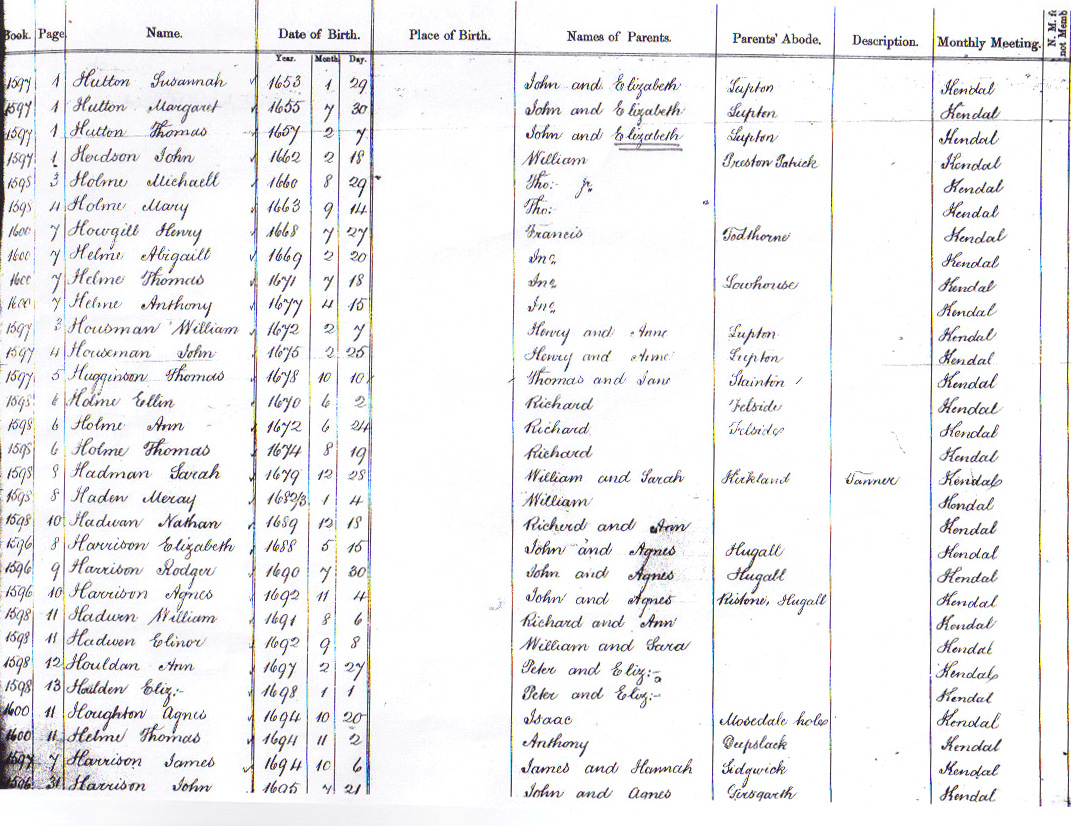 Book. Page. Name. Date of Birth. Place of Birth. Names of Parents. Parents' Abode. Description. Monthly Meeting. N. M. not Memb
Year. Month. Day.
1597 1 Hutton Susannah 1653 1 29 John and Elizabeth Lupton Kendal
1597 1 Hutton Margaret 1655 7 30 John and Elizabeth Lupton Kendal
1597 1 Hutton Thomas 1657 2 7 John and Elizabeth Lupton Kendal
1597 1 John 1662 2 18 William Preston Patrick Kendal
1598 3 Holme Michaell 1660 8 29 Tho: jr. Kendal
1598 4 Holme Mary 1663 9 14 Tho: Kendal
1600 7 Howgill Henry 1668 7 27 Francis Todthorne Kendal
1600 7 Helme Abigaill 1669 2 20 Jno. Kendal
1600 7 Helme Thomas 1671 7 18 Jno. Lowhouse Kendal
1600 7 Helme Anthony 1677 4 15 Jno. Kendal
1597 Housman William 1672 2 7 Henry and Anne Lupton Kendal
1597 4 Houseman John 1675 2 25 Henry and Anne Lupton Kendal
1597 5 Hugginson Thomas 1678 10 10 Thomas and Jane Stainton Kendal
1598 6 Holme Ellin 1670 6 2 Richard Felside Kendal
1598 6 Holme Ann 1672 6 24 Richard Felside Kendal
1598 6 Holme Thomas 1674 8 19 Richard Kendal
1598 8 Hadman Sarah 1679 12 28 William and Sarah Kirkland Tanner Kendal
1598 8 Haden Meray 1682/3 1 4 William Kendal
1598 10 Hadwan Nathan 1689 12 18 Richerd and Ann Kendal
1596 8 Harrison Elizabeth 1688 5 15 John and Agnes Hugall Kendal
1596 9 Harrison Rodger 1690 7 30 John and Agnes Hugall Kendal
1596 10 Harrison Agnes 1692 11 4 John and Agnes Ristone, Hugall Kendal
1598 11 Hadwen William 1691 8 6 Richard and Ann Kendal
1598 11 Hadwen Elinor 1692 9 8 William and Sara Kendal
1598 12 Houldan Ann 1697 2 27 Peter and Eliz:- Kendal
1598 13 Houlden Eliz:- 1698 1 1 Peter and Eliz:- Kendal
1600 11 Houghton Agnes 1694 10 20 Isaac Mosedale hole Kendal
1600 11 Helme Thomas 1694 11 2 Anthony Deepslack Kendal
1597 7 Harrison James 1694 10 6 James and Hannah Sidgwick Kendal
1596 31 Harrison John 1695 7 21 John and Agnes Girsgarth Kendal